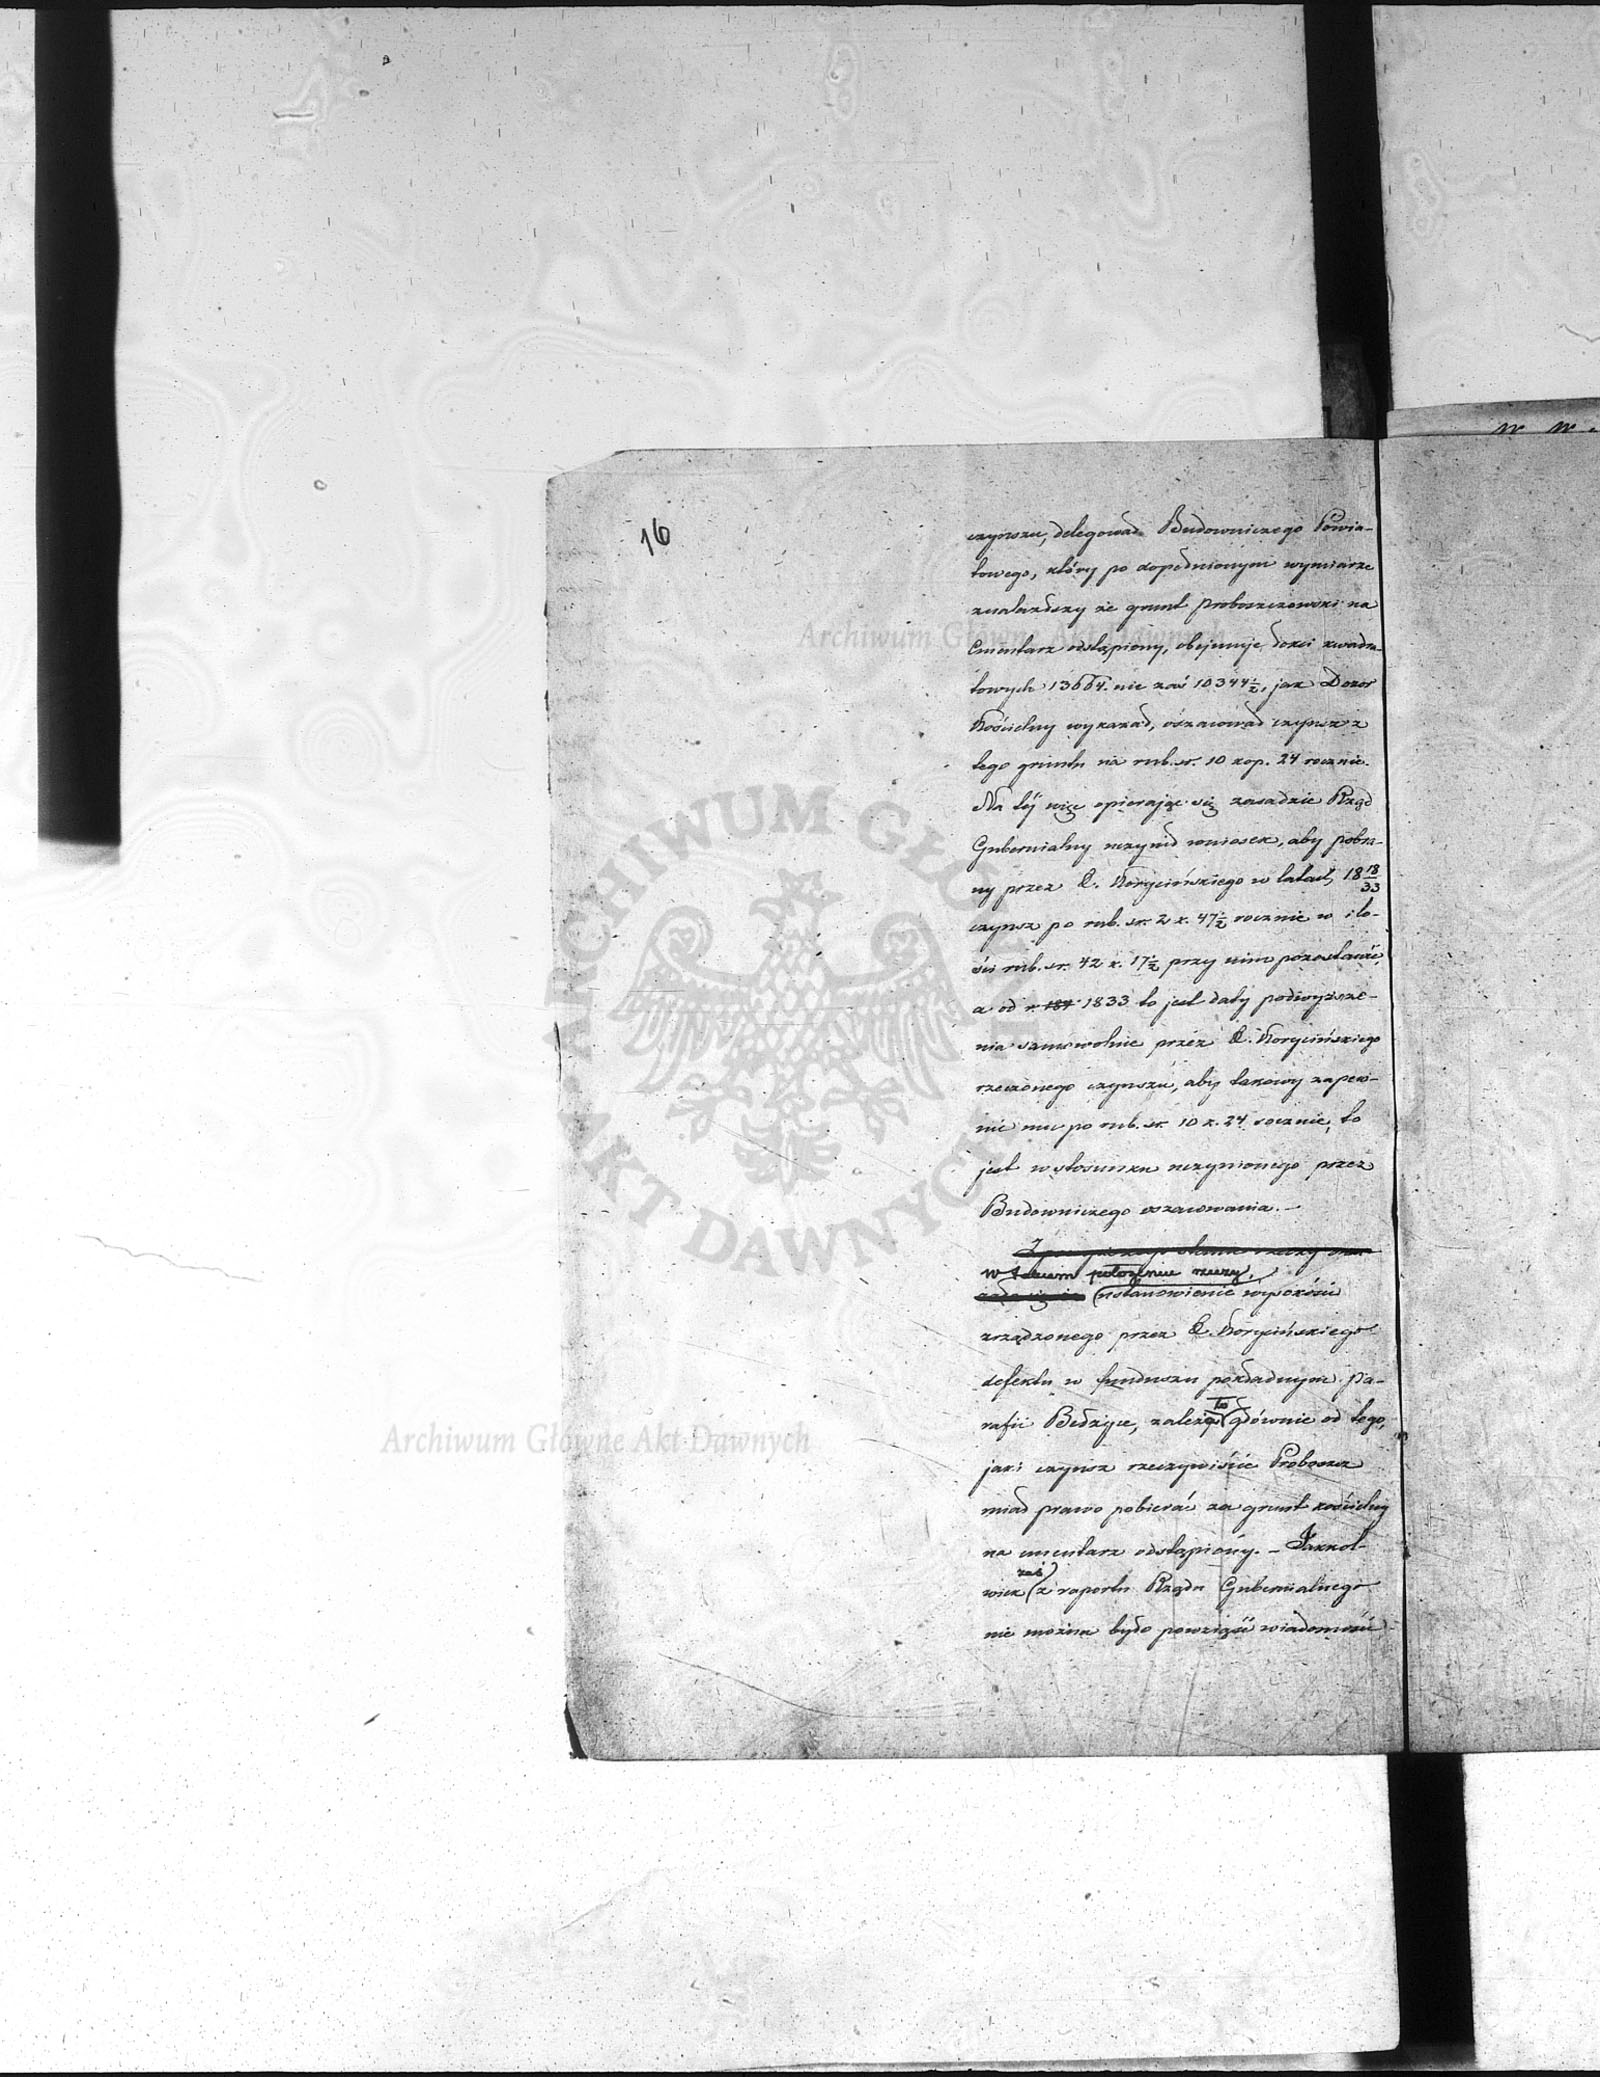 16
czynszu, delegował Budowniczego Powia-
towego, który po dopełnionym wymiarze
znalazłszy że grunt Proboszczowski na
Cmentarz odstąpiony, obejmuje łokci kwadra-
towych 13664. nie zaś 10344½, jak Dozór
Kościelny wykazał, oszacował czynsz z
tego gruntu na rub. sr. 10 kop. 24 rocznie.
Na tej więc opierając się zasadzie Rząd
Gubernialny uczynił wniosek, aby pobra-
ny przez X. Korycińskiego w latach 18 18/33
czynsz po rub. sr. 2 k. 47½ rocznie w ilo-
ści rub. sr. 42 k. 17½ przy nim pozostawić,
a od r. 184 1833 to jest daty podwyższe-
nia samowolnie przez X. Korycińskiego
rzeczonego czynszu, aby takowy zapew-
nić mu po rub. sr. 10 k. 24 rocznie, to
jest w stosunku uczynionego przez
Budowniczego oszacowania. —
stanu rzeczy
w takiem położeniu rzeczy,
ustanowienie wysokości
zrządzonego przez X. Korycińskiego
defektu w funduszu pokładnym pa-
rafii Bedzyce, zależy to głównie od tego,
jaki czynsz rzeczywiście Proboszcz
miał prawo pobierać za grunt kościelny
na cmentarz odstąpiony. — Jakkol-
wiek zaś z raportu Rządu Gubernialnego
nie można było powziąść wiadomości
Archiwum Główne Akt Dawnych
ARCHIWUM GŁÓWNE AKT DAWNYCH
Archiwum Główne Akt Dawnych